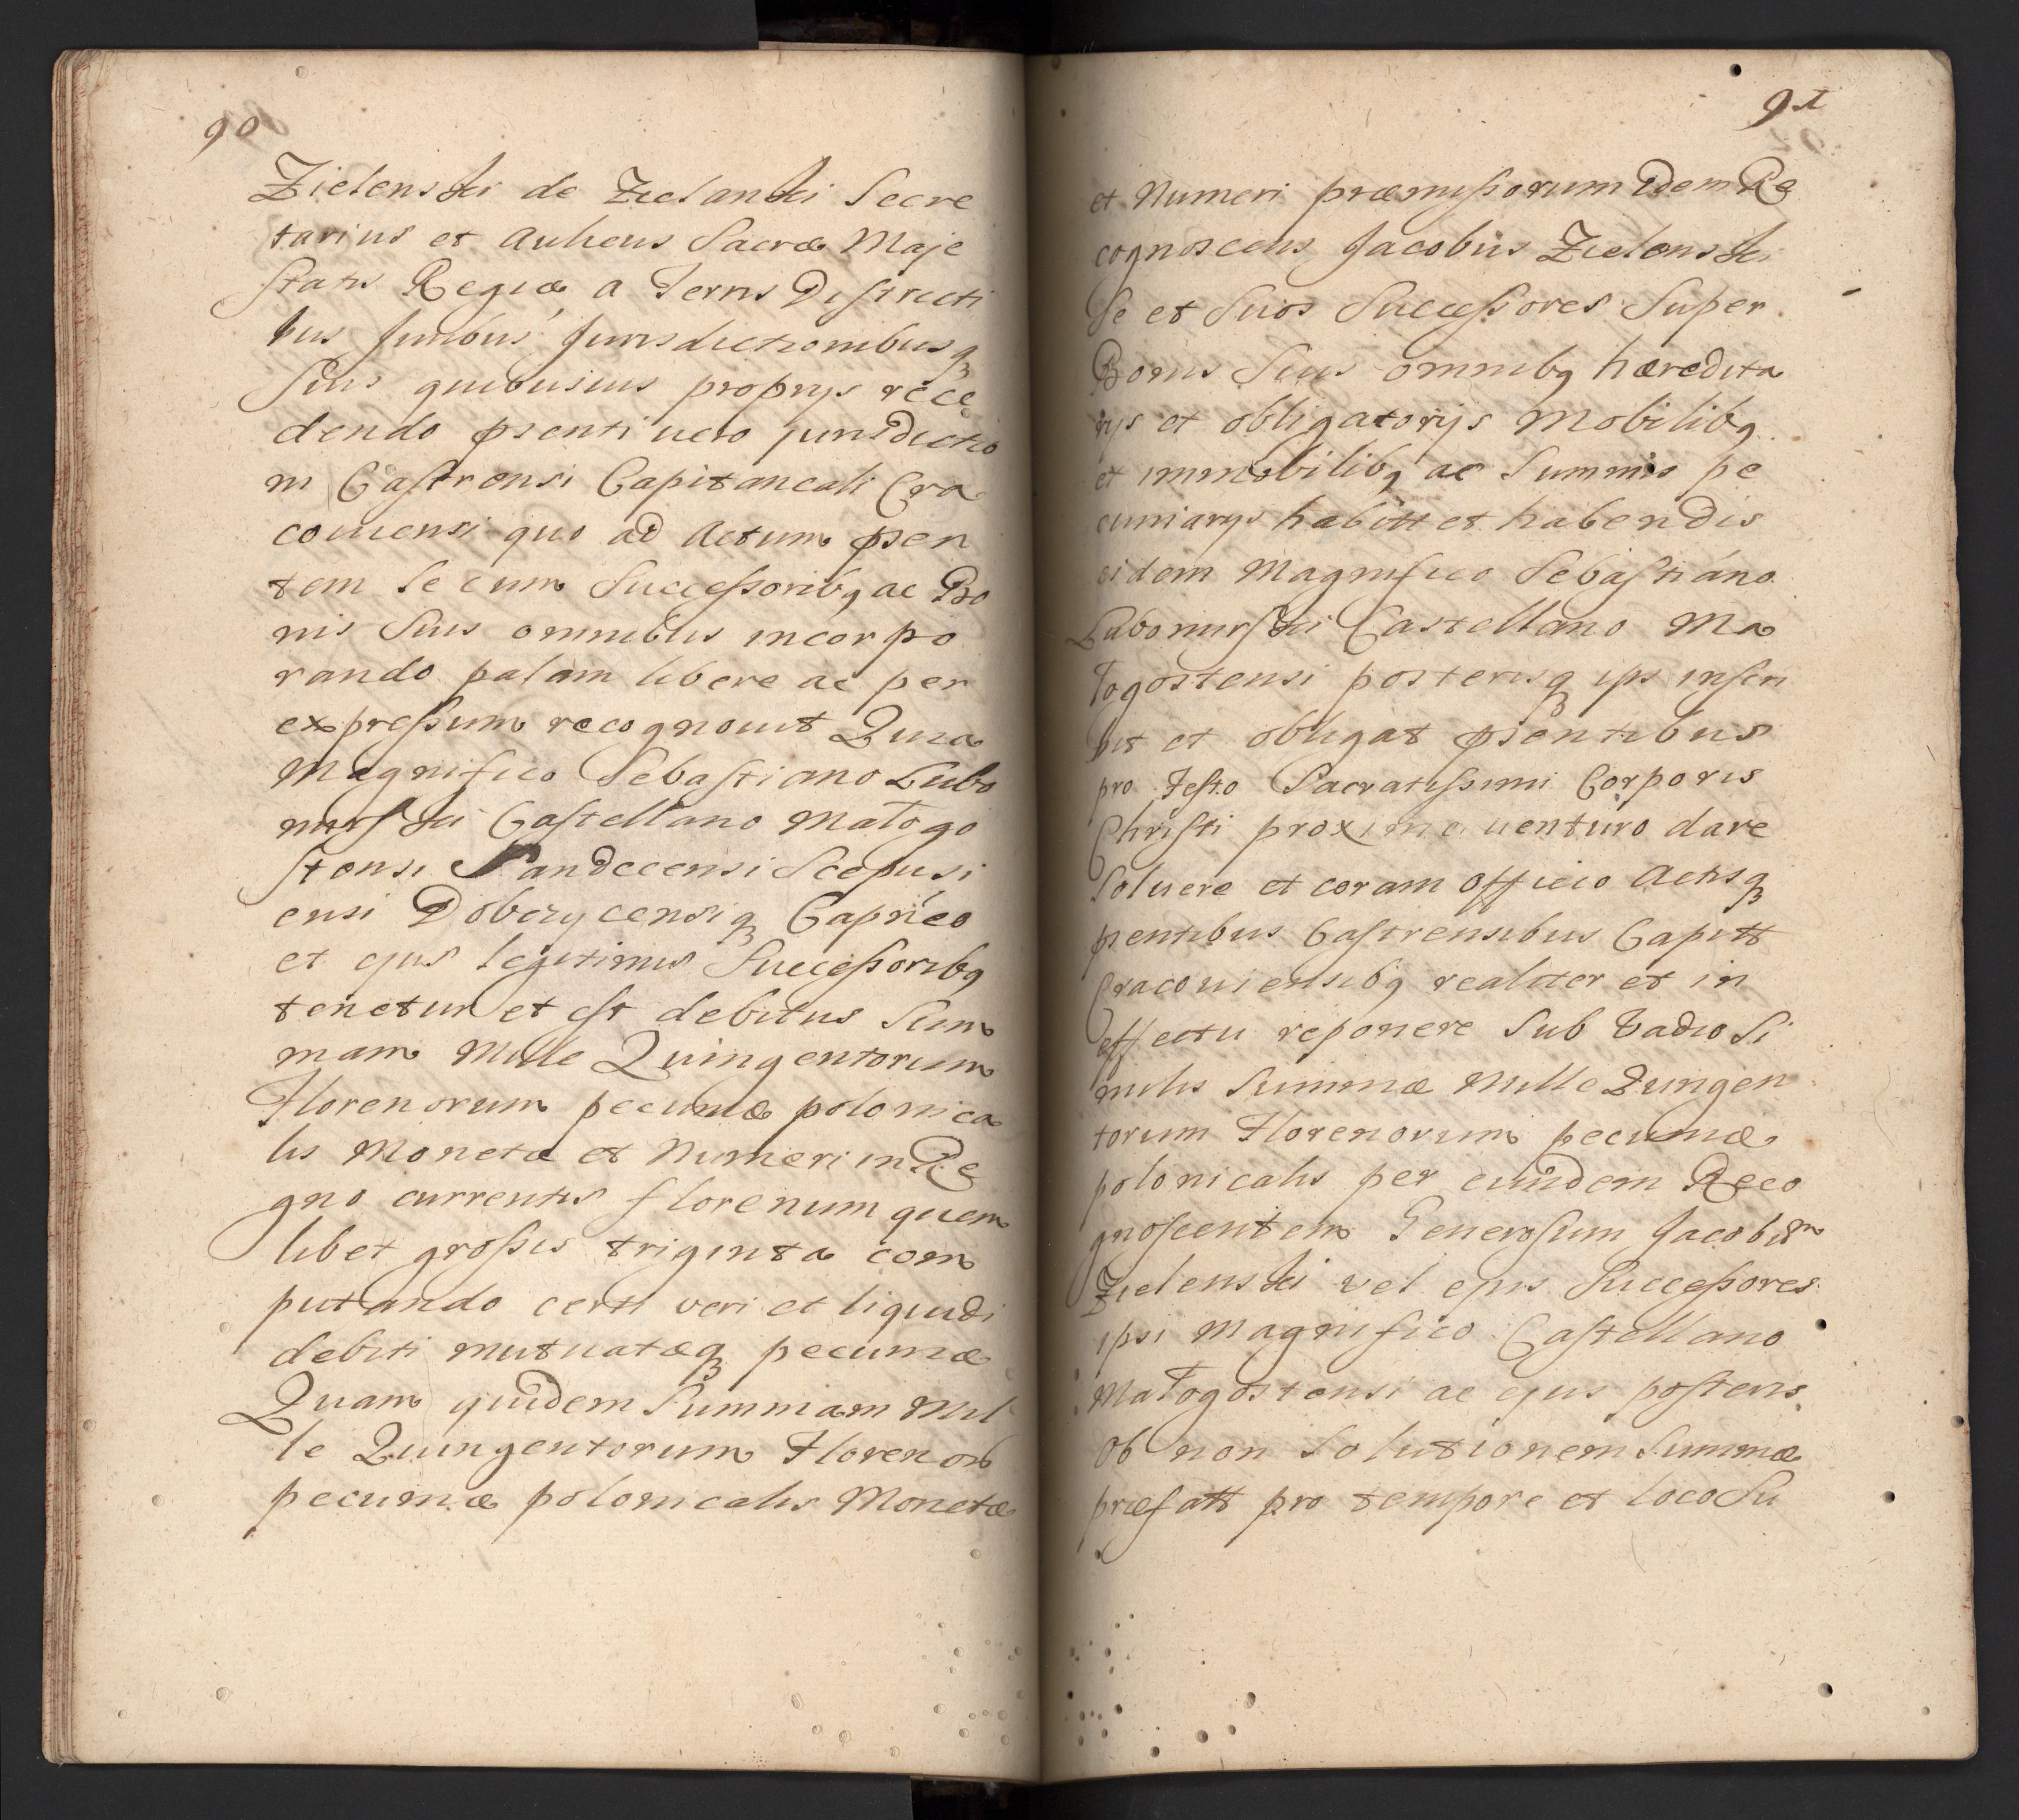 90
Zielenski de Zielanki Secre
tarius et Aulicus Sacræ Maje
statis Regiæ a Terris Districti
bus Juribus Jurisdictionibusq
Suis quibusuis proprijs rece
dendo psenti uero jurisdictio
ni Castrensi Capitaneali Cra
couiensi quo ad Actum psen
tem se cum Successoribq ac Bo
nis Suis omnibus incorpo
rando palam libere ac per
expressum recognouit Quia
Magnifico Sebastiano Lubo
mirski Castellano Małogo
stensi Sandecensi Scepusi
ensi Dobczycensiq Capneo
et ejus legitimis Successoribq
tenetur et est debitus Sum
mam Mille Quingentorum
Florenorum pecuniæ polonica
lis Monetæ et Numeri in Re
gno currentis florenum quem
libet grossis triginta com
putando certi veri et liquidi
debiti mutuatæq pecuniæ
Quam quidem Summam Mil
le Quingentorum Florenor
pecuniæ polonicalis Monetæ
91
et Numeri præmissorum Idem Re
cognoscens Jacobus Zielenski
Se et Suos Successores Super
Bonis Suis omnibq hæredita
rijs et obligatorijs Mobilibq
et immobilibq ac Summis pe
cuniarijs habitt et habendis
eidem Magnifico Sebastiano
Lubomirski Castellano Ma
łogostensi posterisq ips inscri
bit et obligat psentibus
pro Festo Sacratissimi Corporis
Christi proxime uenturo dare
Soluere et coram Officio Actisq
psentibus Castrensibus Capitt
Cracouiensibq realiter et in
effectu reponere Sub Vadio Si
milis Summæ Mille Quingen
torum Florenorum pecuniæ
polonicalis per eundem Reco
gnoscentem Generosum Jacobum
Zielenski vel ejus Successores
ipsi Magnifico Castellano
Małogostensi ac ejus posteris
Ob non Solutionem Summæ
præfatt pro tempore et loco Su